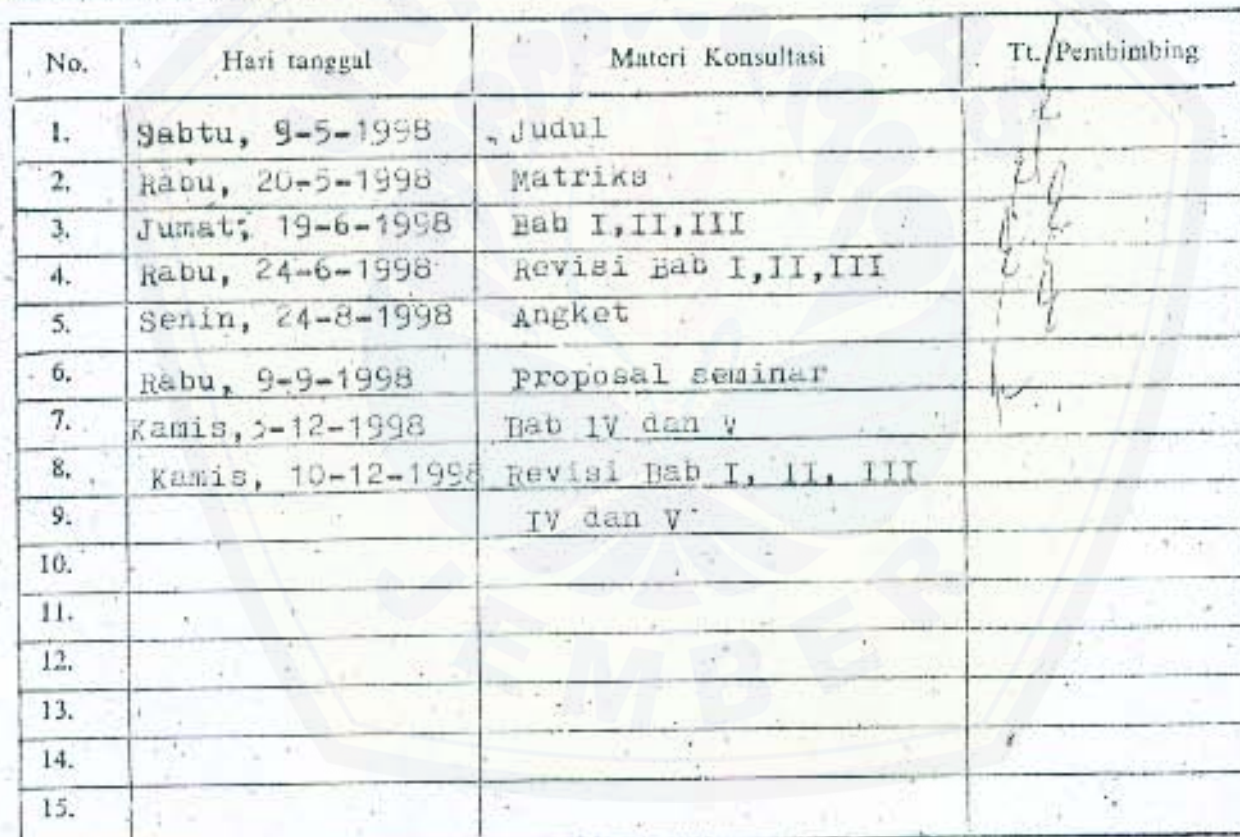 No. Hari tanggal Materi Konsultasi Tt. Pembimbing
1. Sabtu, 9-5-1998 Judul
2. Rabu, 20-5-1998 Matriks
3. Jumat, 19-6-1998 Bab I,II,III
4. Rabu, 24-6-1998 Revisi Bab I,II,III
5. Senin, 24-8-1998 Angket
6. Rabu, 9-9-1998 proposal seminar
7. Kamis, 3-12-1998 Bab IV dan V
8. Kamis, 10-12-1998 Revisi Bab I, II, III
9. IV dan V
10.
11.
12.
13.
14.
15.
JEMBER